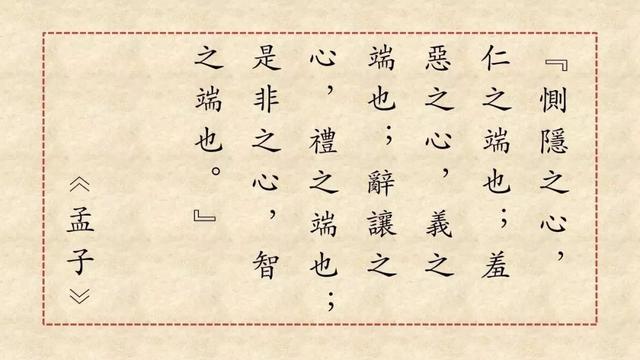 『惻隱之心，
仁之端也；羞
惡之心，義之
端也；辭讓之
心，禮之端也；
是非之心，智
之端也。』
《孟子》